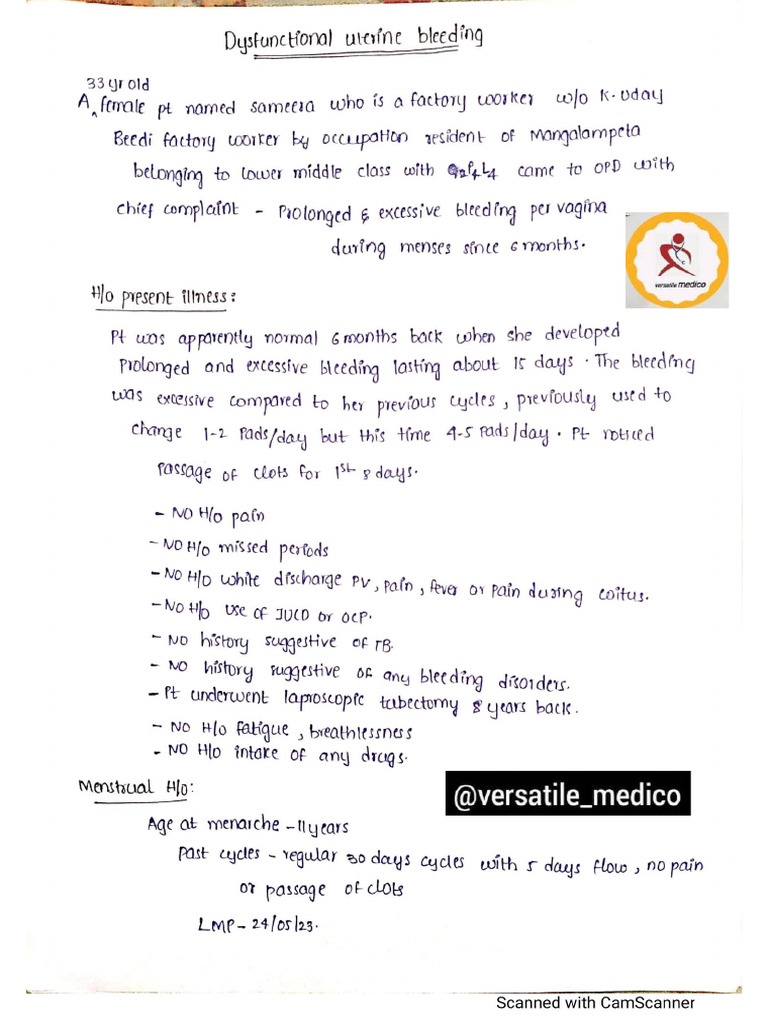 Dysfunctional uterine bleeding
33 yr old
A female pt named sameera who is a factory worker w/o K. Uday
Beedi factory worker by occupation resident of Mangalampeta
belonging to lower middle class with P4L4 came to OPD with
chief complaint - Prolonged & excessive bleeding per vagina
during menses since 6 months.
versatile medico
H/o present illness:
Pt was apparently normal 6 months back when she developed
Prolonged and excessive bleeding lasting about 15 days. The bleeding
was excessive compared to her previous cycles, previously used to
change 1-2 Pads/day but this time 4-5 Pads/day. Pt noticed
Passage of clots for 1st 8 days.
- NO H/o pain
- NO H/o missed periods
- NO H/o white discharge PV, pain, fever or pain during coitus.
- NO H/o use of IUCD or OCP.
- NO history suggestive of TB.
- NO history suggestive of any bleeding disorders.
- Pt underwent laproscopic tubectomy 8 years back.
- NO H/o fatigue, breathlessness
- NO H/o intake of any drugs.
Menstrual H/o:
@versatile_medico
Age at menarche - 11 years
Past cycles - regular 30 days cycles with 5 days flow, no pain
or passage of clots
LMP - 24/05/23.
Scanned with CamScanner